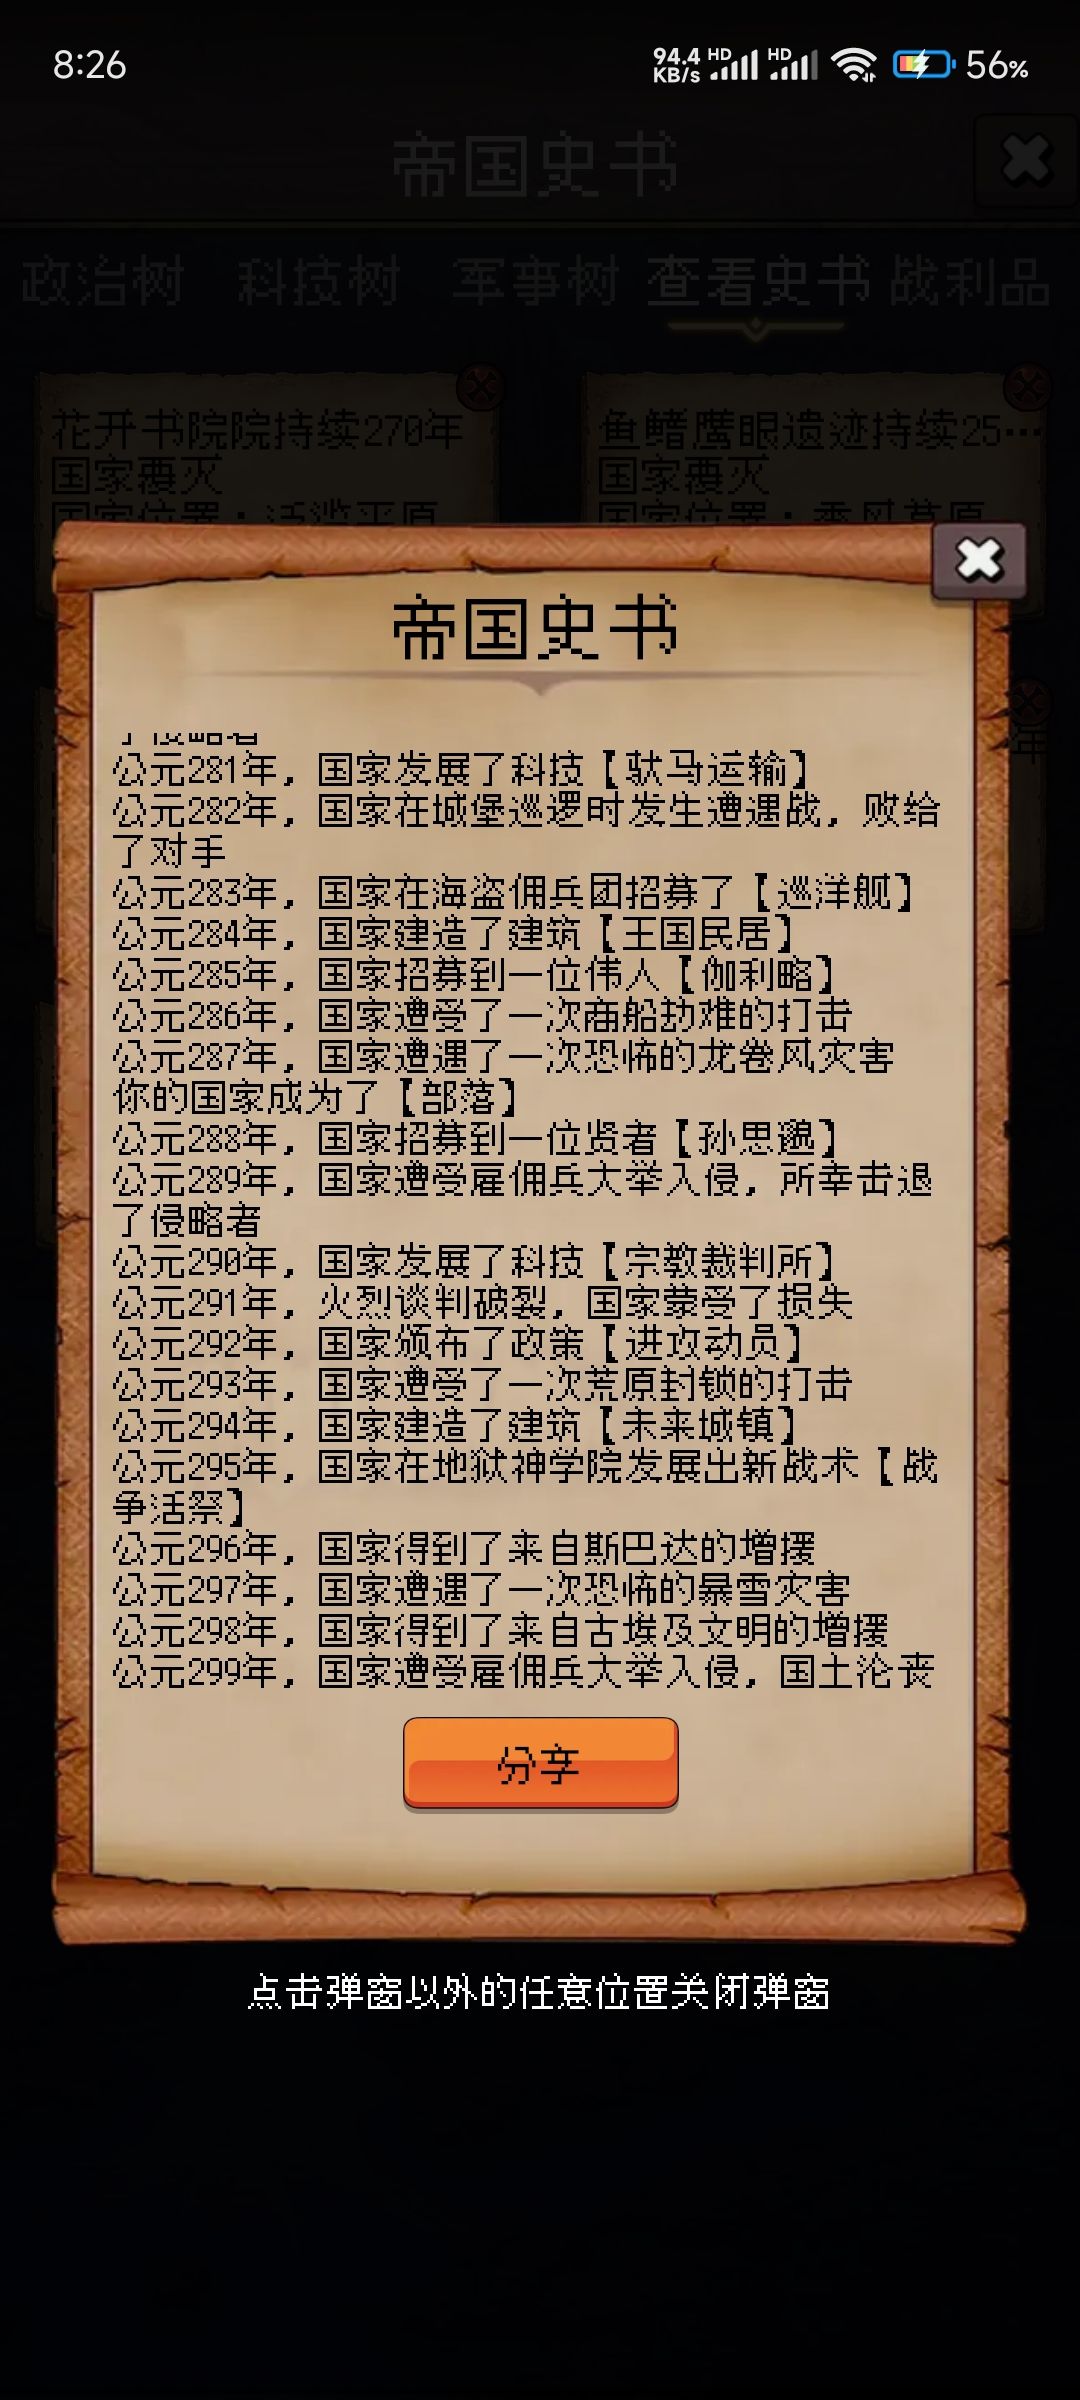 8:26
94.4 KB/s HD HD 56%
帝国史书
政治树 科技树 军事树 查看史书 战利品
花开书院院持续270年
国家覆灭
国家位置：泛滥平原
鱼鳍鹰眼遗迹持续25…
国家覆灭
国家位置：季风草原
帝国史书
了侵略者
公元281年，国家发展了科技【驮马运输】
公元282年，国家在城堡巡逻时发生遭遇战，败给
了对手
公元283年，国家在海盗佣兵团招募了【巡洋舰】
公元284年，国家建造了建筑【王国民居】
公元285年，国家招募到一位伟人【伽利略】
公元286年，国家遭受了一次商船劫难的打击
公元287年，国家遭遇了一次恐怖的龙卷风灾害
你的国家成为了【部落】
公元288年，国家招募到一位贤者【孙思邈】
公元289年，国家遭受雇佣兵大举入侵，所幸击退
了侵略者
公元290年，国家发展了科技【宗教裁判所】
公元291年，火烈谈判破裂，国家蒙受了损失
公元292年，国家颁布了政策【进攻动员】
公元293年，国家遭受了一次荒原封锁的打击
公元294年，国家建造了建筑【未来城镇】
公元295年，国家在地狱神学院发展出新战术【战
争活祭】
公元296年，国家得到了来自斯巴达的增援
公元297年，国家遭遇了一次恐怖的暴雪灾害
公元298年，国家得到了来自古埃及文明的增援
公元299年，国家遭受雇佣兵大举入侵，国土沦丧
分享
点击弹窗以外的任意位置关闭弹窗